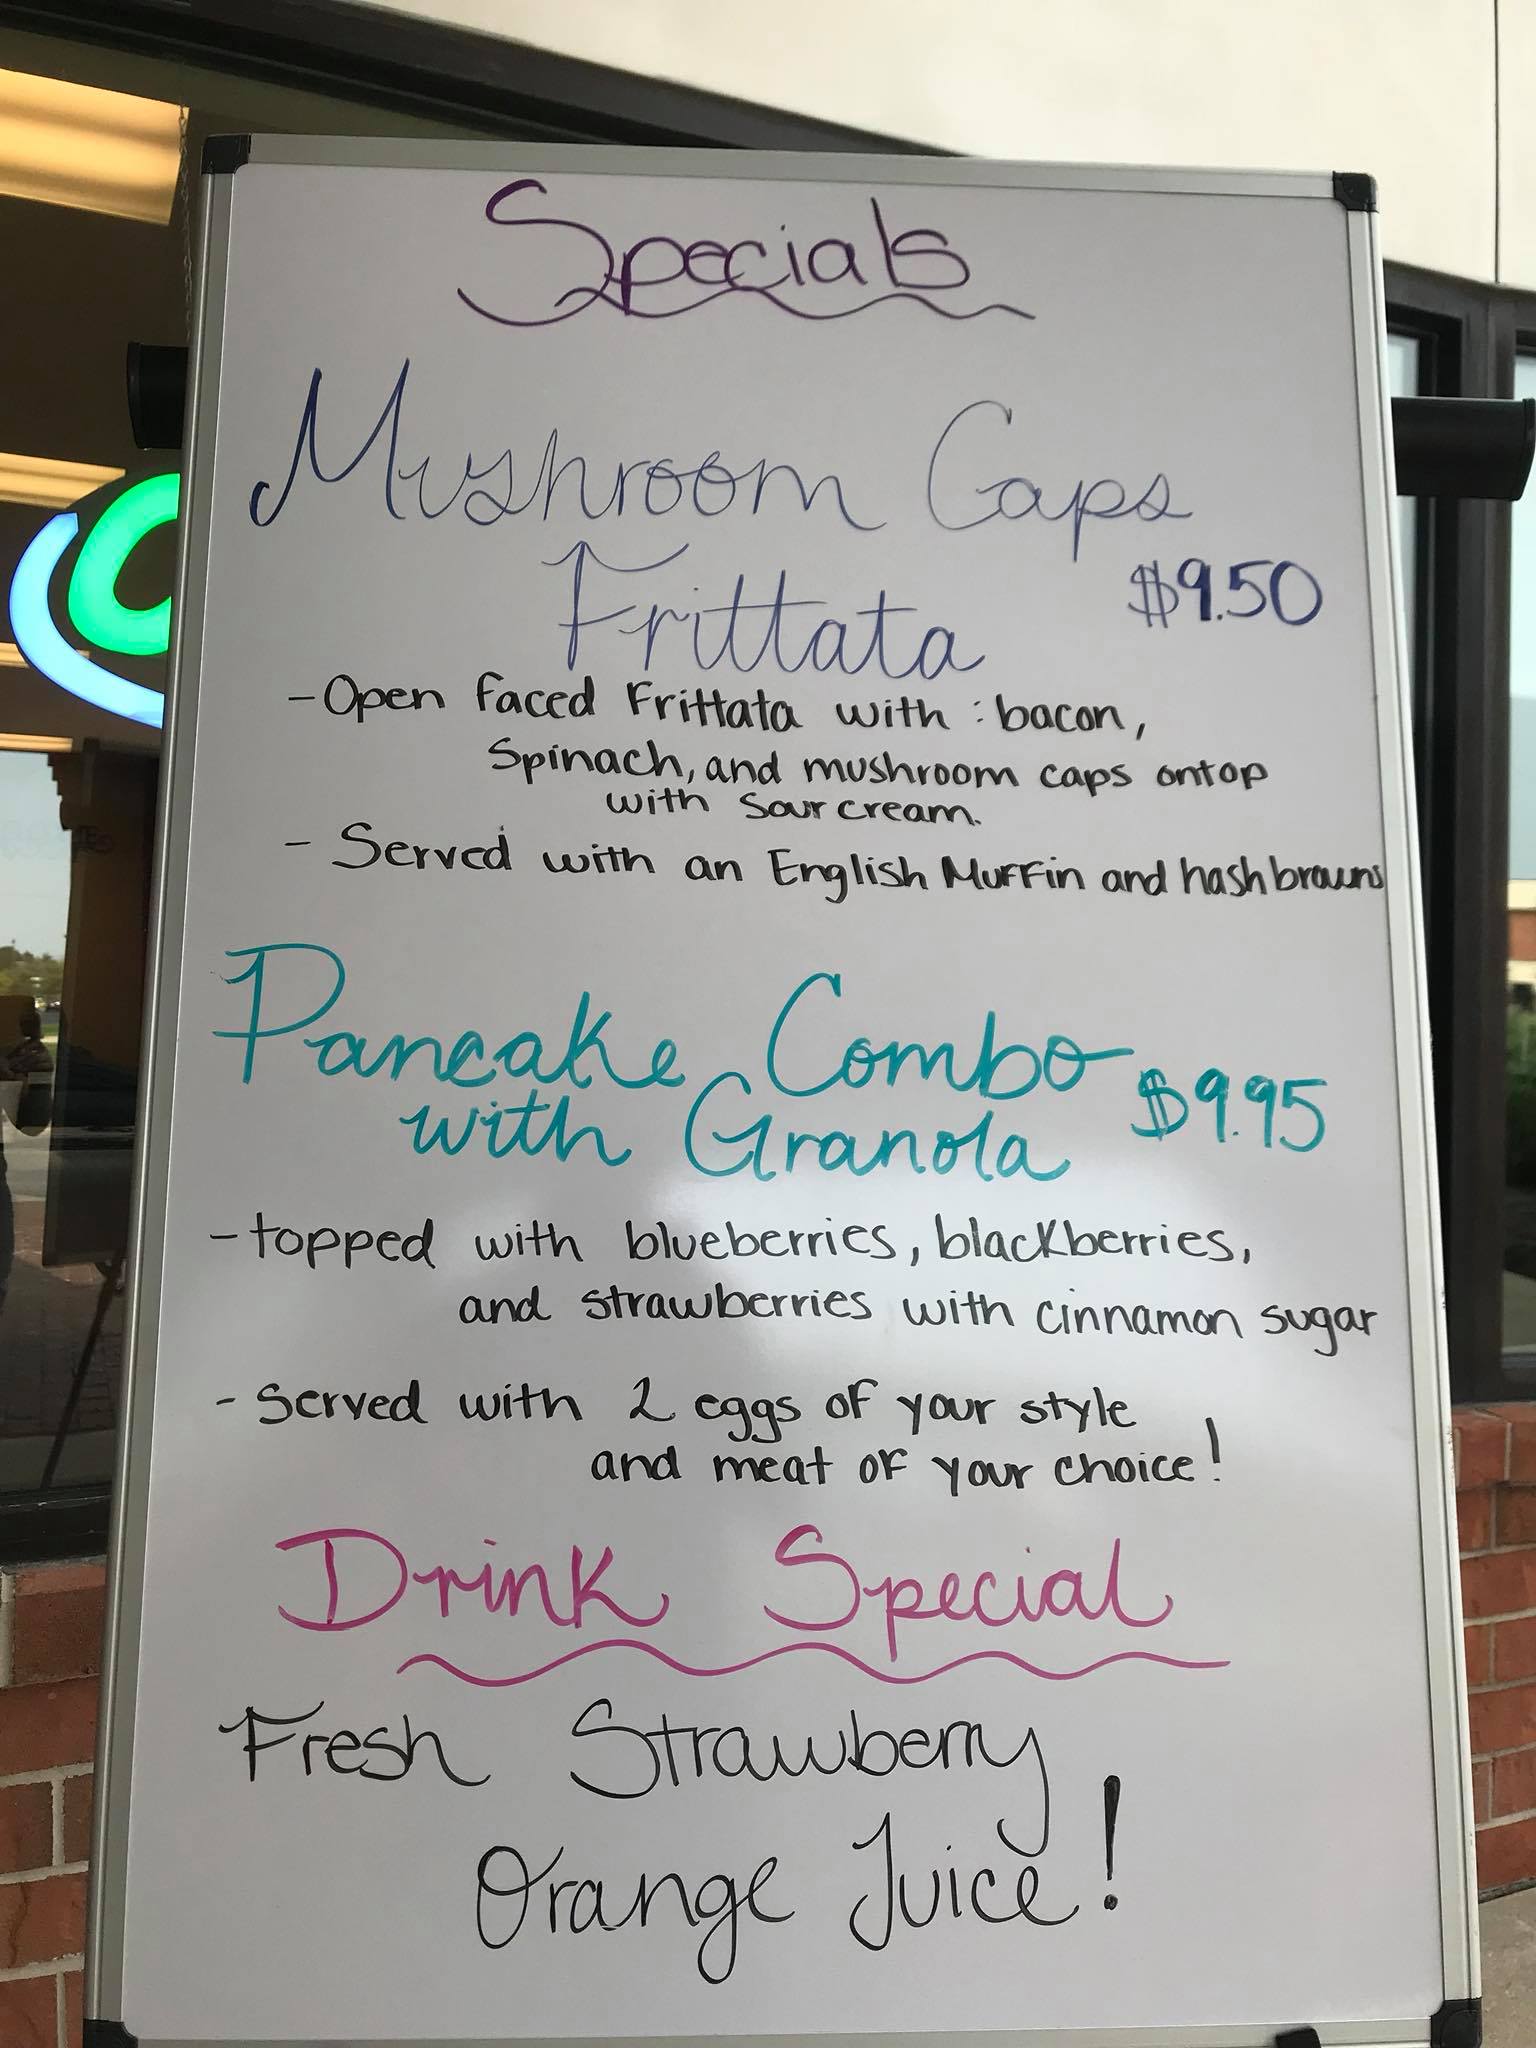 Specials
Mushroom Caps
Frittata $9.50
- Open faced Frittata with : bacon,
Spinach, and mushroom caps ontop
with sour cream.
- Served with an English Muffin and hashbrowns
Pancake Combo
with Granola $9.95
- topped with blueberries, blackberries,
and strawberries with cinnamon sugar
- served with 2 eggs of your style
and meat of your choice!
Drink Special
Fresh Strawberry
Orange Juice!